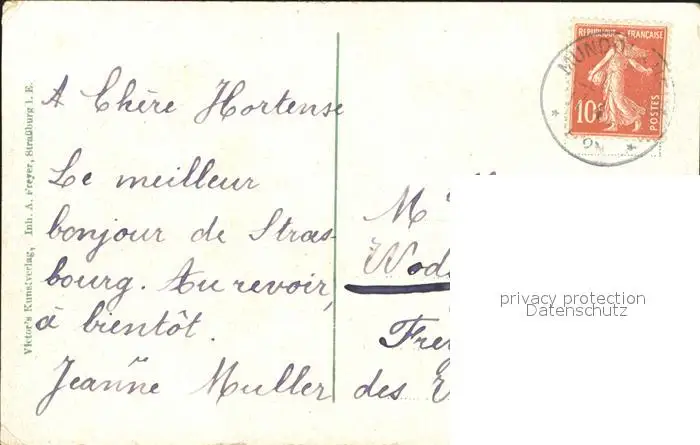 A Chère Hortense
Le meilleur
bonjour de Stras-
bourg. Au revoir,
à bientôt.
Jeanne Muller
Victor's Kunstverlag, Inh. A. Freyer, Straßburg i. E.
REPUBLIQUE FRANÇAISE
10c
POSTES
M
des
privacy protection
Datenschutz